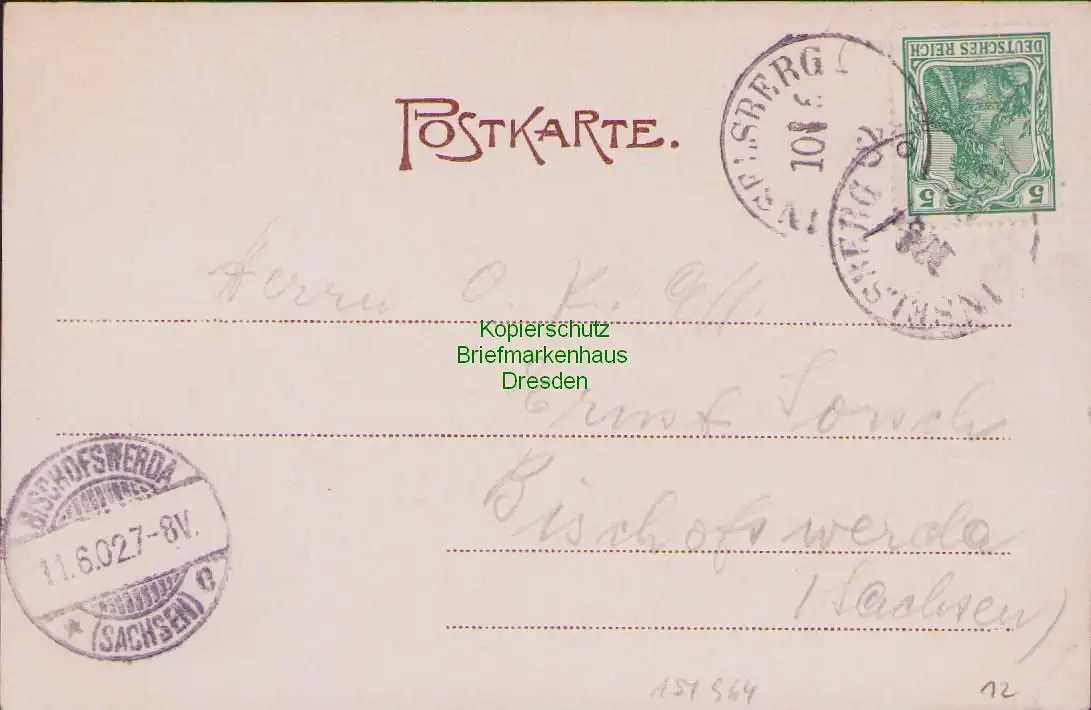 POSTKARTE.
INSELSBERG
10 6
DEUTSCHES REICH
5 5
INSELSBERG
Herrn O.
Kopierschutz
Briefmarkenhaus
Dresden
Ernst
Bischofswerda
(Sachsen)
BISCHOFSWERDA
11.6.02.7-8V.
* (SACHSEN) c
151964
12